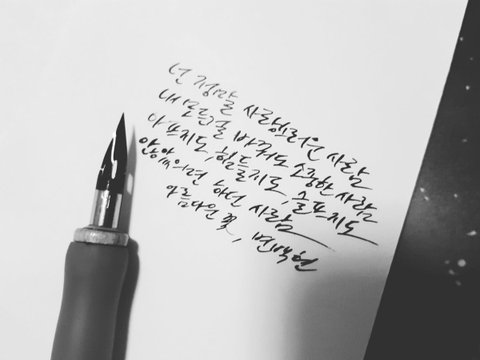 넌 정말 사랑스러운 사람
내 모든걸 바쳐도 소중한 사람
아프지도, 힘들지도, 슬프지도
않았으면 하는 사람
아름다운 꽃, 변백현